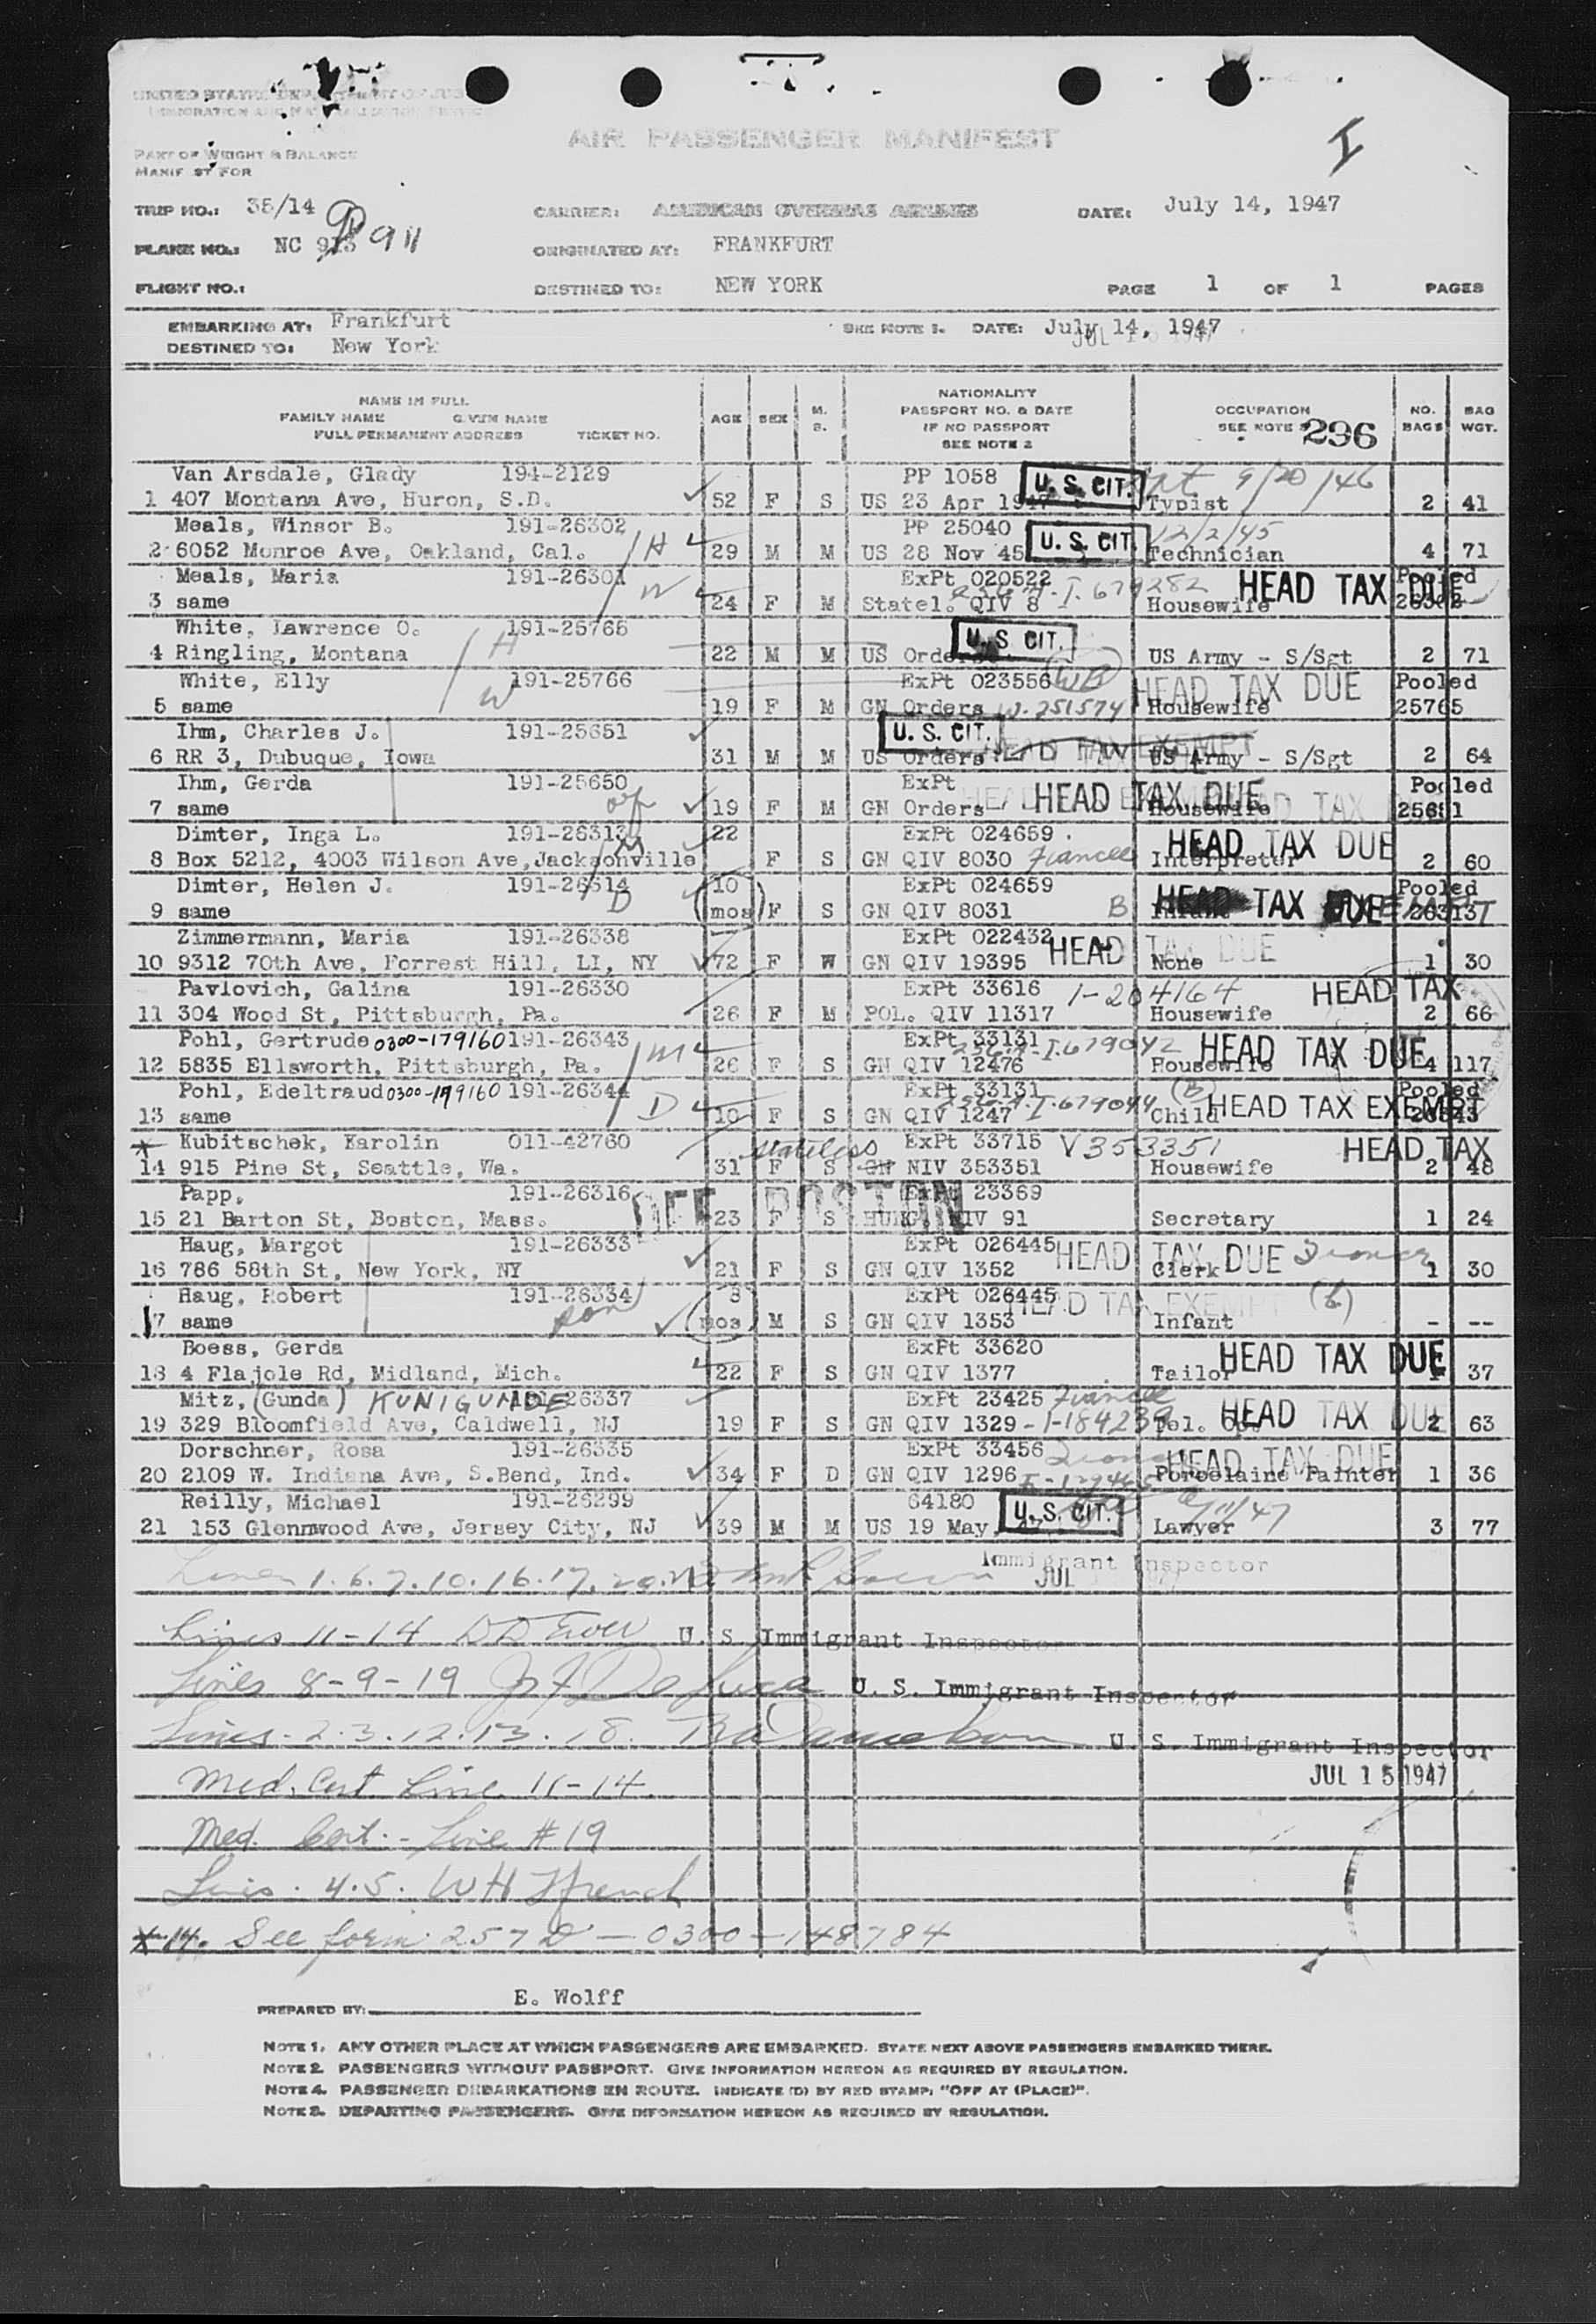 UNITED STATES DEPARTMENT OF JUSTICE
IMMIGRATION AND NATURALIZATION SERVICE
AIR PASSENGER MANIFEST
I
PART OF WEIGHT & BALANCE
MANIF ST FOR
TRIP NO.: 35/14 CARRIER: AMERICAN OVERSEAS AIRLINES DATE: July 14, 1947
PLANE NO.: NC 913 911 ORIGINATED AT: FRANKFURT
FLIGHT NO.: DESTINED TO: NEW YORK PAGE 1 OF 1 PAGES
EMBARKING AT: Frankfurt SEE NOTE 1. DATE: July 14, 1947
DESTINED TO: New York JUL 15 1947
NAME IN FULL
FAMILY NAME GIVEN NAME
FULL PERMANENT ADDRESS TICKET NO. AGE SEX M. S. NATIONALITY PASSPORT NO. & DATE IF NO PASSPORT SEE NOTE 2 OCCUPATION SEE NOTE 3 296 NO. BAGS BAG WGT.
Van Arsdale, Glady 194-2129 PP 1058 U. S. CIT. 9/20/46
1 407 Montana Ave, Huron, S.D. 52 F S US 23 Apr 1947 Typist 2 41
Meals, Winsor B. 191-26302 PP 25040 U. S. CIT. 12/2/45
2 6052 Monroe Ave, Oakland, Cal. H 29 M M US 28 Nov 45 Technician 4 71
Meals, Maria 191-26301 ExPt 020522 I-679282 HEAD TAX DUE Pooled
3 same W 24 F M Statel. QIV 8 Housewife 26302
White, Lawrence O. 191-25765 U. S. CIT.
4 Ringling, Montana H 22 M M US Orders US Army - S/Sgt 2 71
White, Elly 191-25766 ExPt 023556 WB HEAD TAX DUE Pooled
5 same W 19 F M GN Orders W-251574 Housewife 25765
Ihm, Charles J. 191-25651 U. S. CIT. HEAD TAX EXEMPT
6 RR 3, Dubuque, Iowa 31 M M US Orders US Army - S/Sgt 2 64
Ihm, Gerda 191-25650 ExPt HEAD TAX DUE Pooled
7 same 19 F M GN Orders Housewife 25651
Dimter, Inga L. 191-26313 22 ExPt 024659 HEAD TAX DUE
8 Box 5212, 4003 Wilson Ave, Jacksonville F S GN QIV 8030 Fiancee Interpreter 2 60
Dimter, Helen J. 191-26314 10 ExPt 024659 Pooled
9 same D mos F S GN QIV 8031 B Infant HEAD TAX DUE EXEMPT 26313
Zimmermann, Maria 191-26338 ExPt 022432 HEAD TAX DUE
10 9312 70th Ave, Forrest Hill, LI, NY 72 F W GN QIV 19395 None 1 30
Pavlovich, Galina 191-26330 ExPt 33616 1-204164 HEAD TAX
11 304 Wood St, Pittsburgh, Pa. 26 F M POL. QIV 11317 Housewife 2 66
Pohl, Gertrude 0300-179160 191-26343 ExPt 33131 I-679042 HEAD TAX DUE
12 5835 Ellsworth, Pittsburgh, Pa. M 26 F S GN QIV 12476 Housewife 4 117
Pohl, Edeltraud 0300-179160 191-26344 ExPt 33131 I-679044 (B) HEAD TAX EXEMPT Pooled
13 same D 10 F S GN QIV 1247 Child 26343
* Kubitschek, Karolin 011-42760 stateless ExPt 33715 V353351 HEAD TAX
14 915 Pine St, Seattle, Wa. 31 F S GN NIV 353351 Housewife 2 48
Papp, 191-26316 OFF BOSTON ExPt 23369
15 21 Barton St, Boston, Mass. 23 F S HUNG. NIV 91 Secretary 1 24
Haug, Margot 191-26333 ExPt 026445 HEAD TAX DUE
16 786 58th St, New York, NY 21 F S GN QIV 1352 Clerk 1 30
Haug, Robert 191-26334 8 ExPt 026445 HEAD TAX EXEMPT (b)
17 same son mos M S GN QIV 1353 Infant - --
Boess, Gerda ExPt 33620 HEAD TAX DUE
18 4 Flajole Rd, Midland, Mich. 22 F S GN QIV 1377 Tailor 1 37
Mitz, (Gunda) KUNIGUNDE 26337 ExPt 23425 Fiancee
19 329 Bloomfield Ave, Caldwell, NJ 19 F S GN QIV 1329 -1-184239 Tel. Op. HEAD TAX DUE 2 63
Dorschner, Rosa 191-26335 ExPt 33456 HEAD TAX DUE
20 2109 W. Indiana Ave, S.Bend, Ind. 34 F D GN QIV 1296 Porcelaine Painter 1 36
Reilly, Michael 191-26299 64180 U. S. CIT.
21 153 Glennwood Ave, Jersey City, NJ 39 M M US 19 May 47 Lawyer 3 77
Lines 1.6.7.10.16.17.20.21 Immigrant Inspector
JUL
Lines 11-14 U. S. Immigrant Inspector
Lines 8-9-19 De Luca U. S. Immigrant Inspector
Lines-2.3.12.13.18. U. S. Immigrant Inspector
Med. Cert Line 11-14. JUL 15 1947
Med. Cert. - Line #19
Lines. 4.5. WH French
*14. See form 257 D - 0300-148784
PREPARED BY: E. Wolff
NOTE 1. ANY OTHER PLACE AT WHICH PASSENGERS ARE EMBARKED. STATE NEXT ABOVE PASSENGERS EMBARKED THERE.
NOTE 2. PASSENGERS WITHOUT PASSPORT. GIVE INFORMATION HEREON AS REQUIRED BY REGULATION.
NOTE 4. PASSENGER DEBARKATIONS EN ROUTE. INDICATE (D) BY RED STAMP; "OFF AT (PLACE)".
NOTE 3. DEPARTING PASSENGERS. GIVE INFORMATION HEREON AS REQUIRED BY REGULATION.